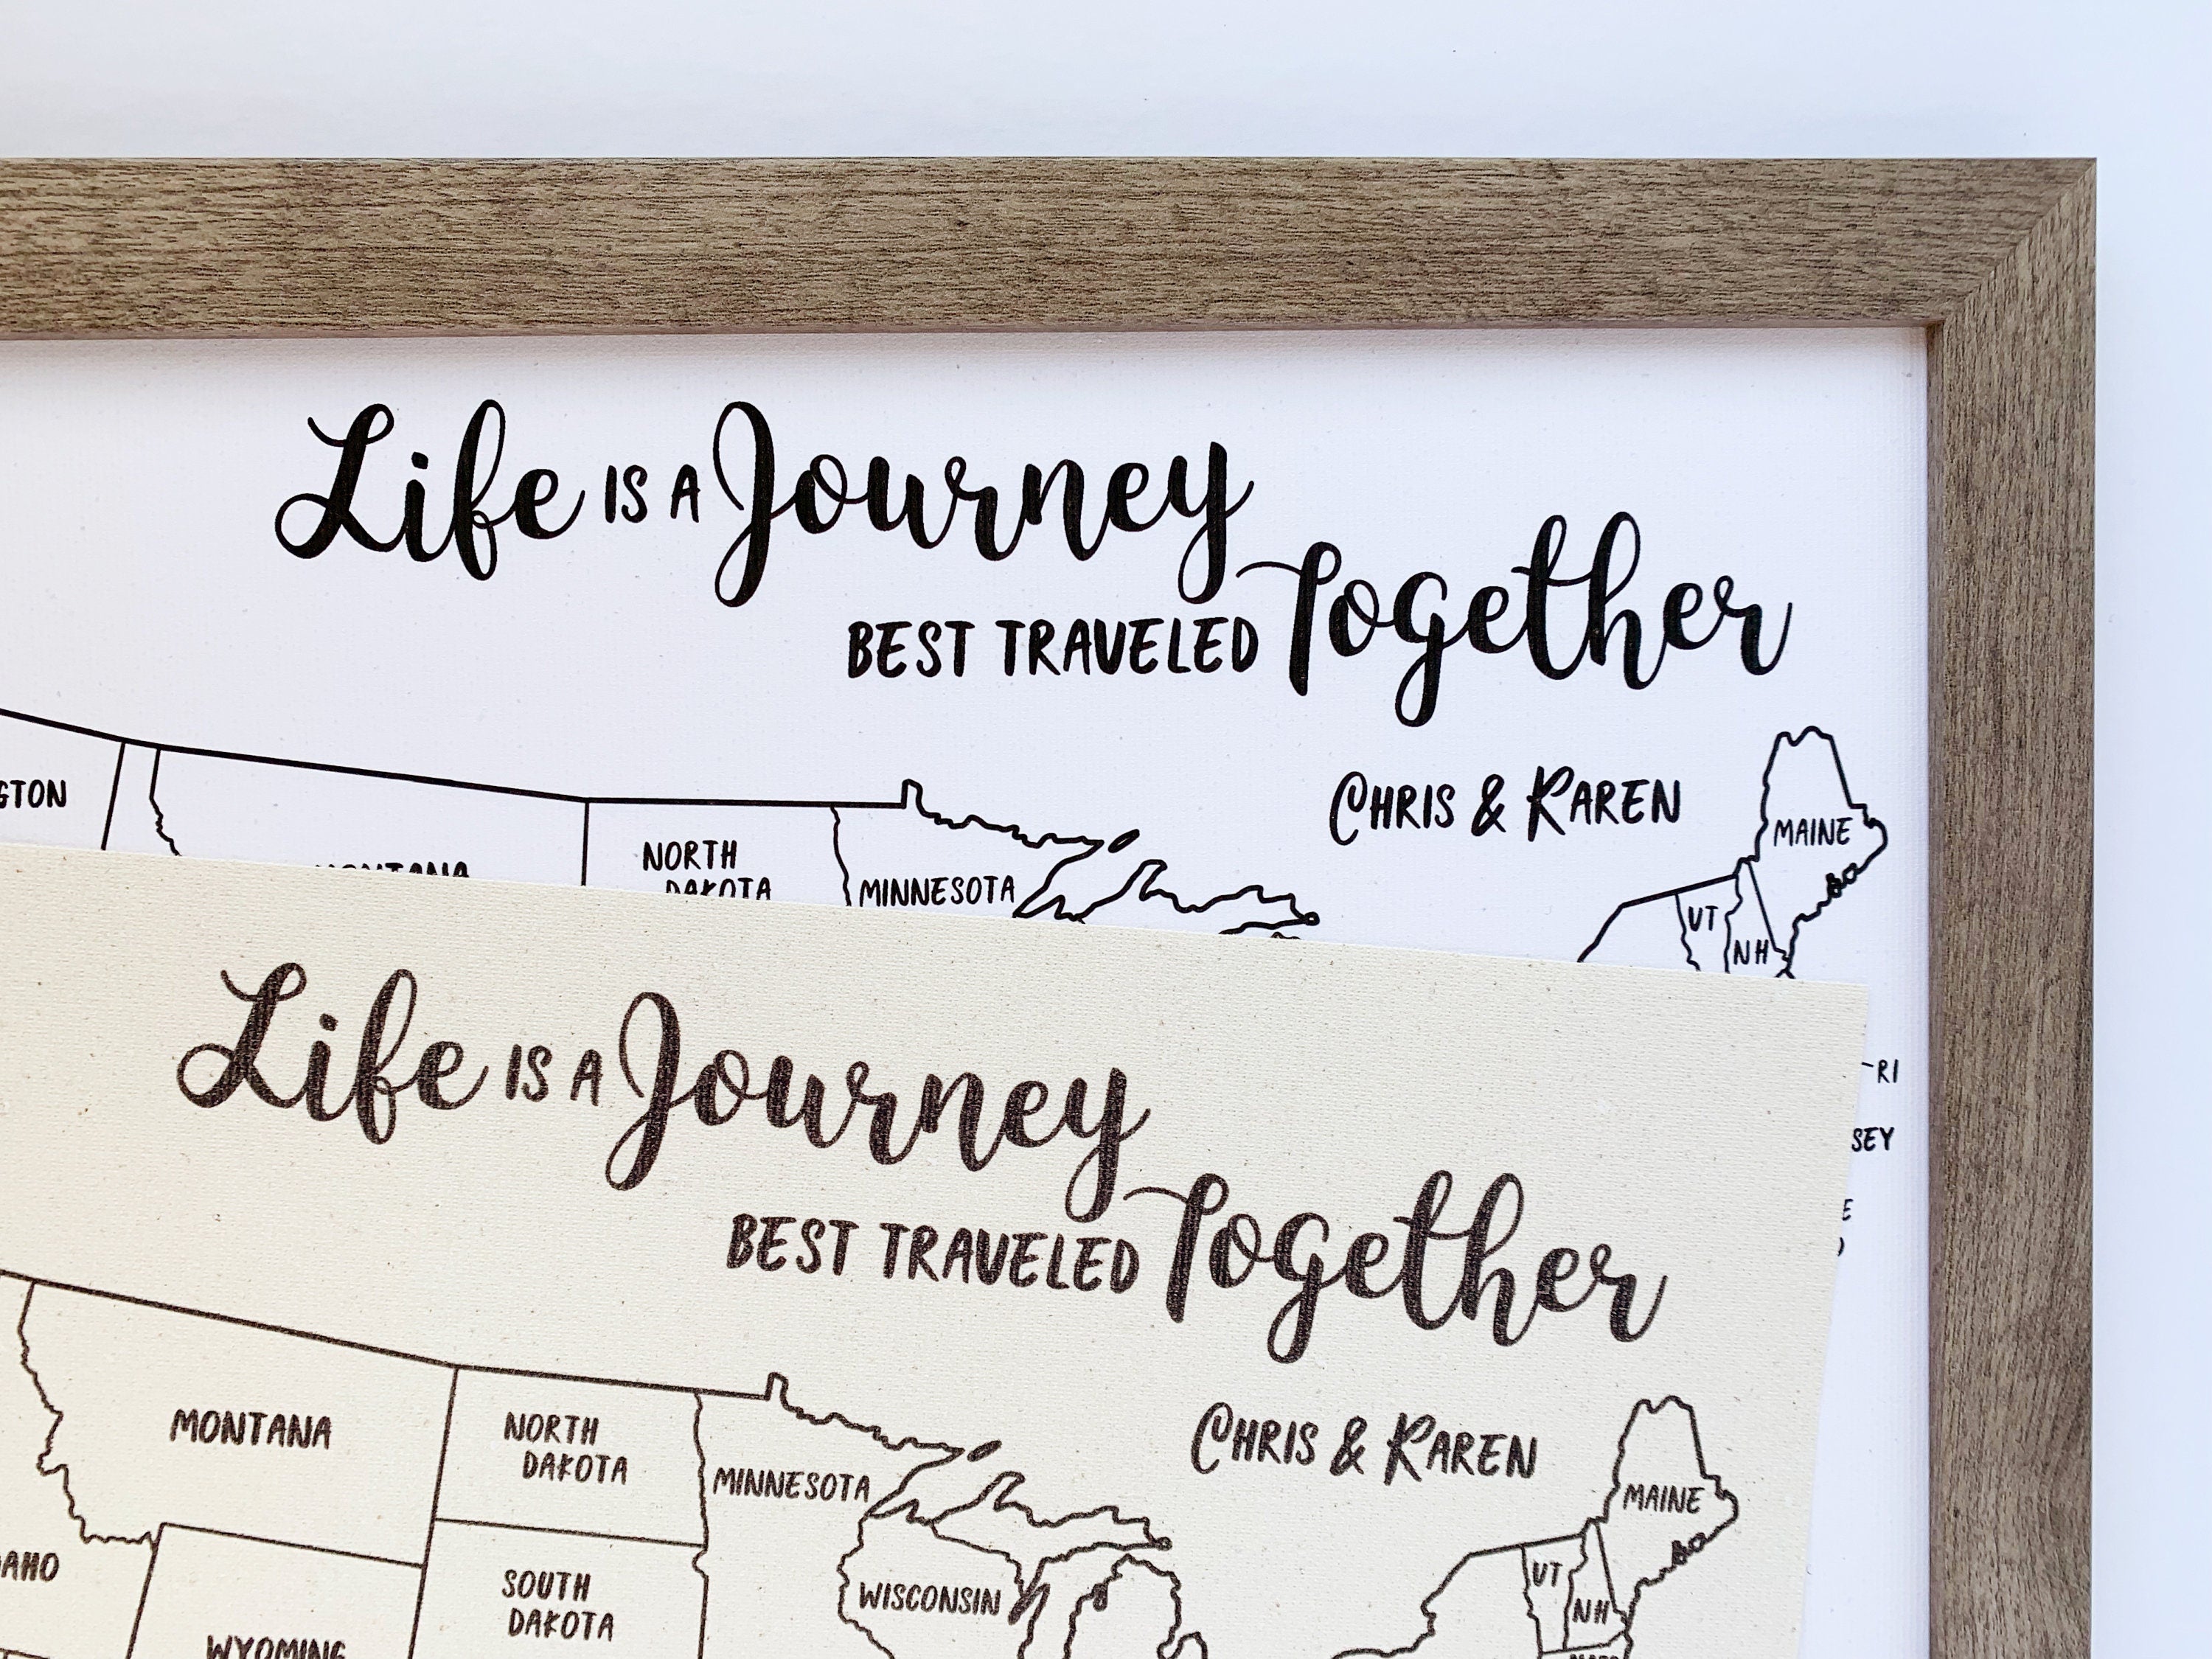 Life IS A Journey
BEST TRAVELED Together
CHRIS & KAREN
GTON
MONTANA
NORTH
DAKOTA
MINNESOTA
MAINE
UT
NH
RI
SEY
E
Life IS A Journey
BEST TRAVELED Together
CHRIS & KAREN
MONTANA
NORTH
DAKOTA
MINNESOTA
MAINE
AHO
WYOMING
SOUTH
DAKOTA
WISCONSIN
UT
NH